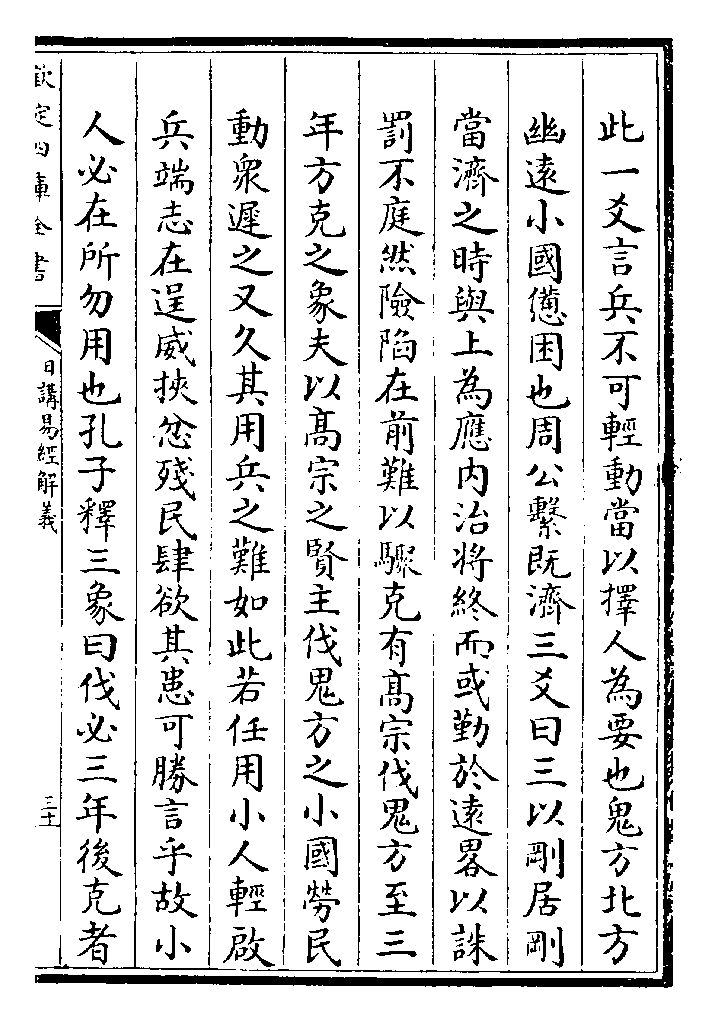 此一爻言兵不可輕動當以擇人為要也鬼方北方
幽遠小國憊困也周公繫既濟三爻曰三以剛居剛
當濟之時與上為應內治將終而或勤於遠畧以誅
罰不庭然險陷在前難以驟克有髙宗伐鬼方至三
年方克之象夫以髙宗之賢主伐鬼方之小國勞民
動衆遲之又久其用兵之難如此若任用小人輕啟
兵端志在逞威挾忿殘民肆欲其患可勝言乎故小
人必在所勿用也孔子釋三象曰伐必三年後克者
欽定四庫全書
日講易經解義
三十